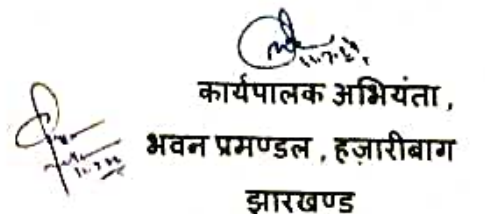 कार्यपालक अभियंता,
भवन प्रमण्डल, हज़ारीबाग
झारखण्ड